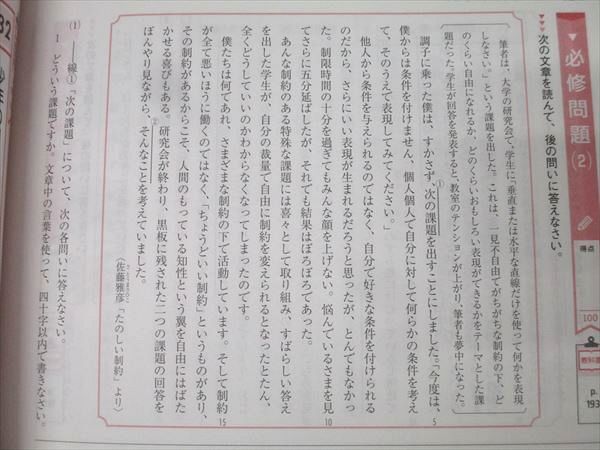 必修問題(2)
得点
100
教科書
p.
193
次の文章を読んで、後の問いに答えなさい。
筆者は、大学の研究会で、学生に「垂直または水平な直線だけを使って何かを表現
しなさい。」という課題を出した。これは、一見不自由でがちがちな制約の下、ど
のくらい自由になれるか、どのくらいおもしろい表現ができるかをテーマとした課
題だった。学生が回答を発表すると、教室のテンションが上がり、筆者も夢中になった。
調子に乗った僕は、すかさず、①次の課題を出すことにしました。「今度は、
僕からは条件を付けません、個人個人で自分に対して何らかの条件を考え
て、そのうえで表現してみてください。」
他人から条件を与えられるのではなく、自分で好きな条件を付けられる
のだから、さらにいい表現が生まれるだろうと思ったが、とんでもなかっ
た。制限時間の十分を過ぎてもみんな顔を上げない。悩んでいるさまを見
てさらに五分延ばしたが、それでも結果はぼろぼろであった。
あんな制約のある特殊な課題には喜々として取り組み、すばらしい答え
を出した学生が、自分の裁量で自由に制約を変えられるとなったとたん、
全くどうしていいのかわからなくなってしまったのです。
僕たちは何であれ、さまざまな制約の下で活動しています。そして制約
が全て悪いほうに働くのではなく、「ちょうどいい制約」というものがあり、
その制約があるからこそ、人間のもっている知性という翼を自由にはばた
かせる喜びもある。②研究会が終わり、黒板に残された二つの課題の回答を
ぼんやり見ながら、そんなことを考えていました。
(佐藤雅彦「たのしい制約」より)
5
10
15
(1) ――線①「次の課題」について、次の各問いに答えなさい。
1 どういう課題ですか。文章中の言葉を使って、四十字以内で書きなさい。